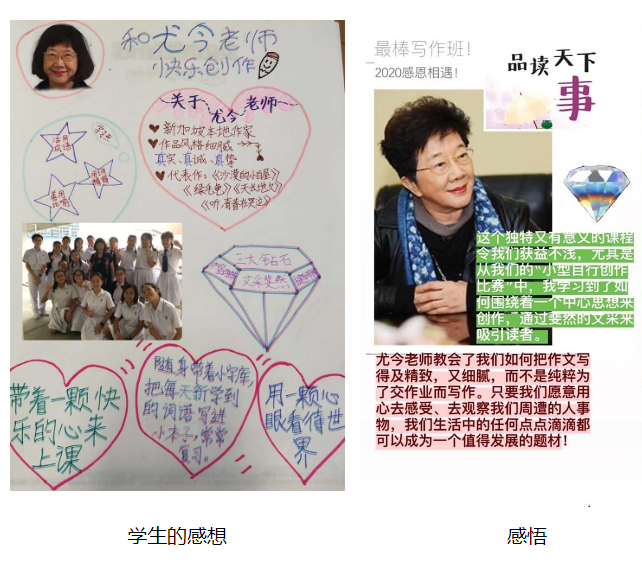 和尤今老师
快乐创作
关于尤今老师
新加坡本地作家
作品风格细腻
真实、真诚、真挚
代表作:《沙漠的小白屋》
《绿色龟》《天长地久》
《听,青春在哭泣》
三大钻石
文采斐然
带着一颗快
乐的心来
上课
随身带着小字库,
把每天新学到
的词语写进
小本子,常常
复习。
用一颗心
眼看待世
界
学生的感想
最棒写作班!
2020感恩相遇!
品读天下
事
这个独特又有意义的课程
令我们获益不浅,尤其是
从我们的“小型自行创作
比赛”中,我学习到了如
何围绕着一个中心思想来
创作,通过斐然的文采来
吸引读者。
尤今老师教会了我们如何把作文写
得及精致,又细腻,而不是纯粹为
了交作业而写作。只要我们愿意用
心去感受、去观察我们周遭的人事
物,我们生活中的任何点点滴滴都
可以成为一个值得发展的题材!
感悟